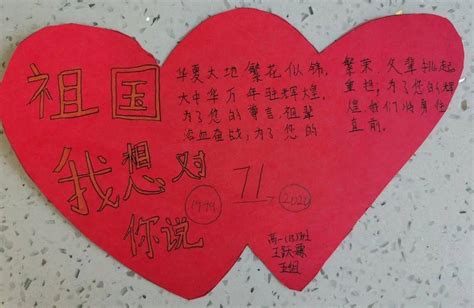 祖国
我想对
你说
华夏大地繁花似锦,
大中华万年驻辉煌.
为了您的尊言,祖辈
浴血奋战,为了您的
繁荣,父辈挑起
重担,为了您的辉
煌我们将往
直前.
71
1949
2020
高一班
王
王